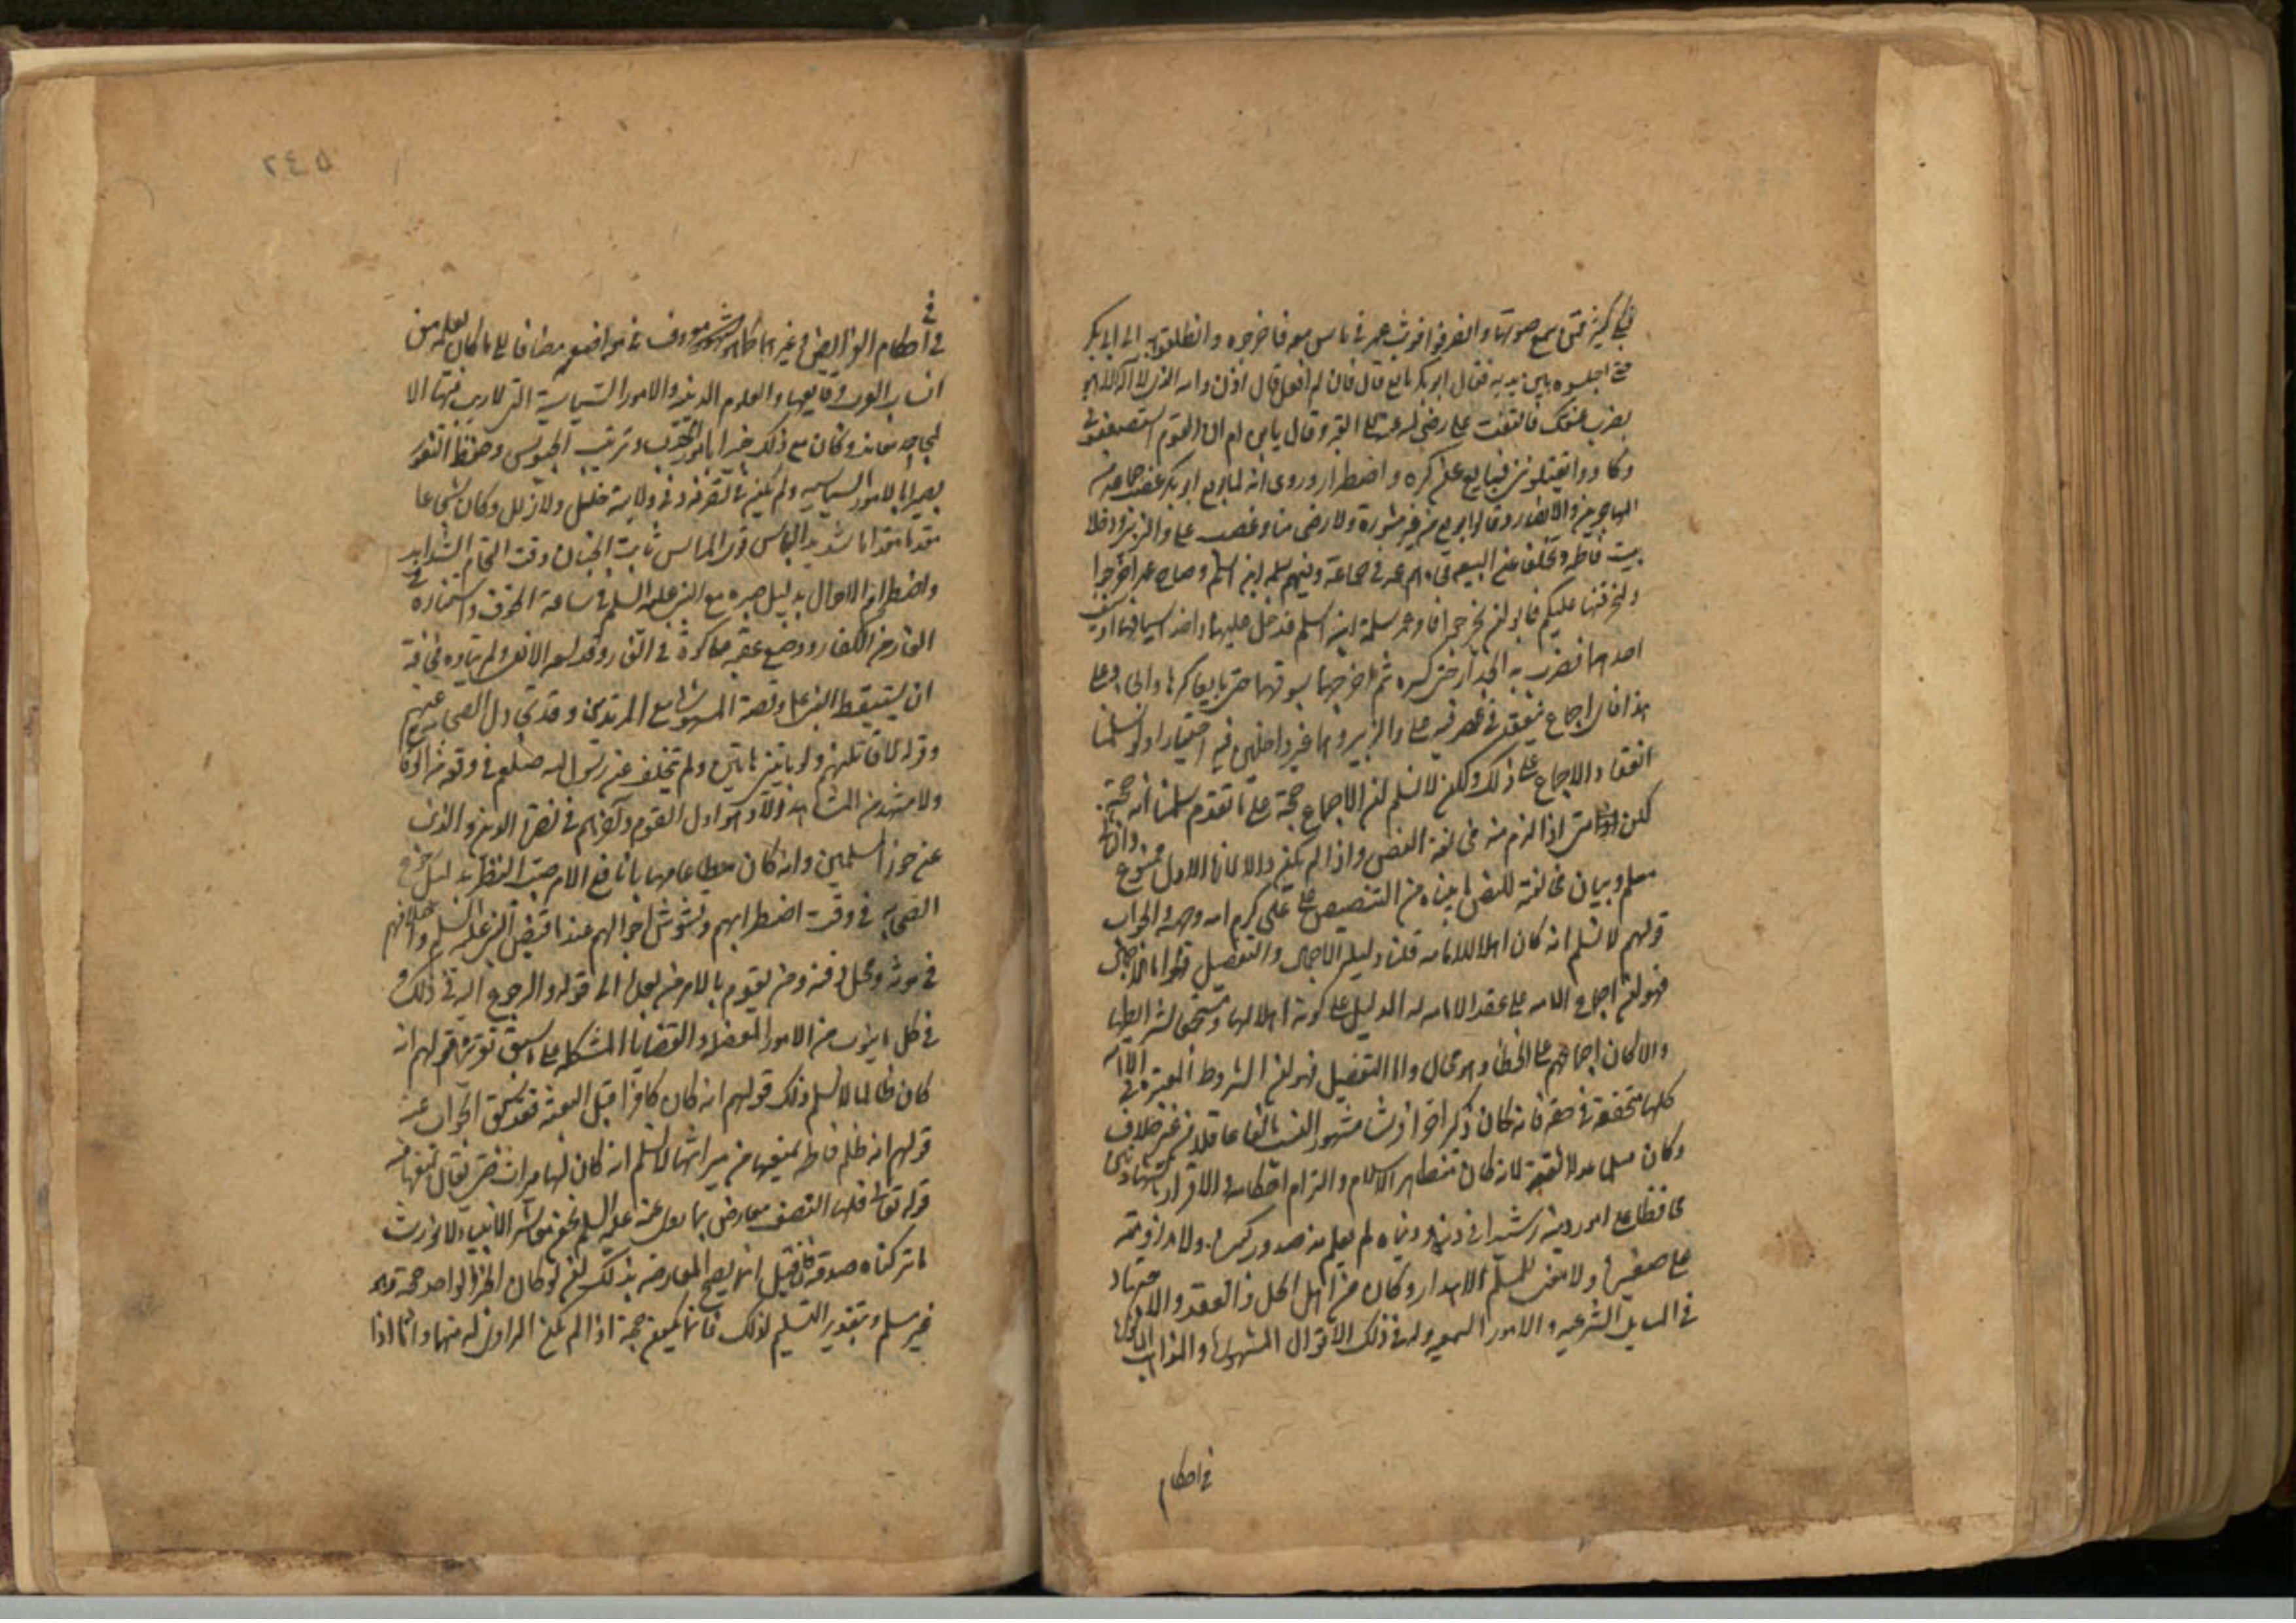 حتى سمع صوتها وانصرفوا فوثب عمر في ناس معه فاخرجوه وانطلقوا به الى ابي بكر
حتى اجلسوه بين يديه فقال ابو بكر بايع قال فان لم افعل قال اذن والله الذي لا اله الا هو
يضرب عنقك فالتفت علي رضي الله عنه الى القبر وقال يا ابن ام ان القوم استضعفوني
وكادوا يقتلونني فبايع على كره واضطرار وروى انه لما بويع ابو بكر غضب جماعة من
المهاجرين والانصار وقالوا بويع من غير مشورة ولا رضى منا وغضب علي والزبير ودخلا
بيت فاطمة وتخلف عن البيعة فجاءهم عمر في جماعة وفيهم سلمة ابن اسلم وصاح عمر اخرجوا
او لنحرقنها عليكم فابوا ان يخرجوا فامر عمر سلمة ابن اسلم فدخل عليهما واخذ سيف
احدهما فضرب به الجدار حتى كسره ثم اخرجهما يسوقهما حتى بايعا كرها
هذا فاي اجماع ينعقد في عصر فيه علي والزبير وهما غير داخلين فيه اختيارا ولو سلمنا
انعقاد الاجماع على ذلك ولكن لا نسلم ان الاجماع حجة على ما تقدم سلمنا انه حجة
لكن متى اذا لزم منه مخالفة النص واذا لم يكن والاول ممنوع
مسلم وبيان مخالفته للنص ما بيناه من التنصيص على علي كرم الله وجهه والجواب
قولهم لا نسلم انه كان اهلا للامامة قلنا دليله الاجمال والتفصيل اما الاجمال
فهو ان اجماع الامة على عقد الامامة له الدليل على كونه اهلا لها ومستحق لشرايطها
والا لكان اجماعهم على الخطأ وهو محال واما التفصيل فهو ان الشروط المعتبرة في الامامة
كلها متحققة في حقه فانه كان ذكرا حرا قرشيا مشهور النسب بالغا عاقلا من غير خلاف
وكان مسلما عدلا ثقة لانه كان متظاهر الاسلام والتزام احكامه والاقرار بالشهادتين
محافظا على امور دينه رشيدا في دينه ودنياه لم يعلم منه صدور كبيرة ولا مداومة
على صغيرة ولا معنى للمسلم الا هذا وكان من اهل الحل والعقد والاجتهاد
في المسايل الشرعية والامور السمعية وله في ذلك الاقوال المشهورة والمذاهب
في احكام
في احكام الفرايض وغيرها كما هو مشهور معروف في مواضعه مضافا الى ما كان يعلمه من
انساب العرب ووقايعها والعلوم الدينية والامور السياسية التي لا ريب فيها الا
لجاحد معاند وكان مع ذلك خبيرا بامور الحرب وترتيب الجيوش وحفظ الثغور
بصيرا بالامور السياسية ولم يكن في تصرفه وفي ولايته خلل ولا زلل وكان شجاعا
مقدما مقداما شديد الباس قوي المراس ثابت الجنان وقت اقتحام الشدايد
واضطراب الاحوال بدليل صبره مع النبي عليه السلم في ساعة الخوف واستتاره في
الغار من الكفار ووضع عقبه في الغار وقد لسعه الافعى ولم يتاوه مخافة
ان يستيقظ النبي عليه وقصته المشهورة مع المرتدين وقد تجادل الصحابة
وقوله لاقاتلنهم ولو بابنتي هاتين ولم يتخلف عن رسول الله صلعم في وقت من الاوقات
ولا مشهد من المشاهد الا وهو اول القوم واخرهم في نصرة الدين والذب
عن حوزة المسلمين وانه كان مطاعا مهابا نافع الامر صايب النظر بدليل
الصحابة في وقت اضطرابهم وتشوش احوالهم عند ما قبض النبي عليه السلم واختلافهم
في موته ومحل دفنه ومن يقوم بالامر من بعده الى قوله والرجوع اليه في ذلك
في كل ما ينوب من الامور المعضلة والقضايا المشكلة على ما سبق تقريره قولهم انه
كان ظالما لا نسلم ذلك قولهم انه كان كافرا قبل البعثة فقد سبق الجواب عنه
قولهم انه ظلم فاطمة بمنعها من ميراثها لا نسلم انه كان لها ميراث حتى يقال بمنعها منه
قوله تعالى فلها النصف معارض بما روى عنه عليه السلم نحن معاشر الانبياء لا نورث
ما تركناه صدقة فان قيل انما يصح المعارضة بذلك ان لو كان الخبر الواحد حجة وهو
غير مسلم وبتقدير التسليم لذلك فانما يكون حجة اذا لم يكن الراوي له متهما واما اذا